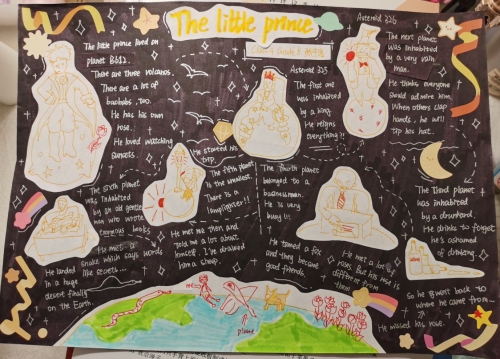 The little prince
The little prince lived on
planet B612.
There are three volcanos.
There are a lot of
baobabs, too.
He has his own
rose.
He loved watching
sunsets.
He started his
trip.
Asteroid 325
The first one
was inhabited
by a king.
He reigns
everything?!
Asteroid 326
The next planet
was inhabited
by a very vain
man.
He thinks everyone
should admire him.
When others clap
hands, he will
tip his hat.
The third planet
was inhabited
by a drunkard.
He drinks to forget
he's ashamed
of drinking.
The fourth planet
belonged to a
businessman.
He is very
busy!!!
The fifth planet
is the smallest.
There is a
lamplighter!!
The sixth planet
was inhabited
by an old gentle
man who wrote
books
He landed
in a huge
desert finally
on the Earth
He met a
snake which says words
like
He met me then and
told me a lot about
himself. I've drawed
him a sheep.
He tamed a fox
and they became
good friends.
He met a lot of
roses. But his rose is
different from
them
So he went back to
where he came from...
He missed his rose.
me
plane